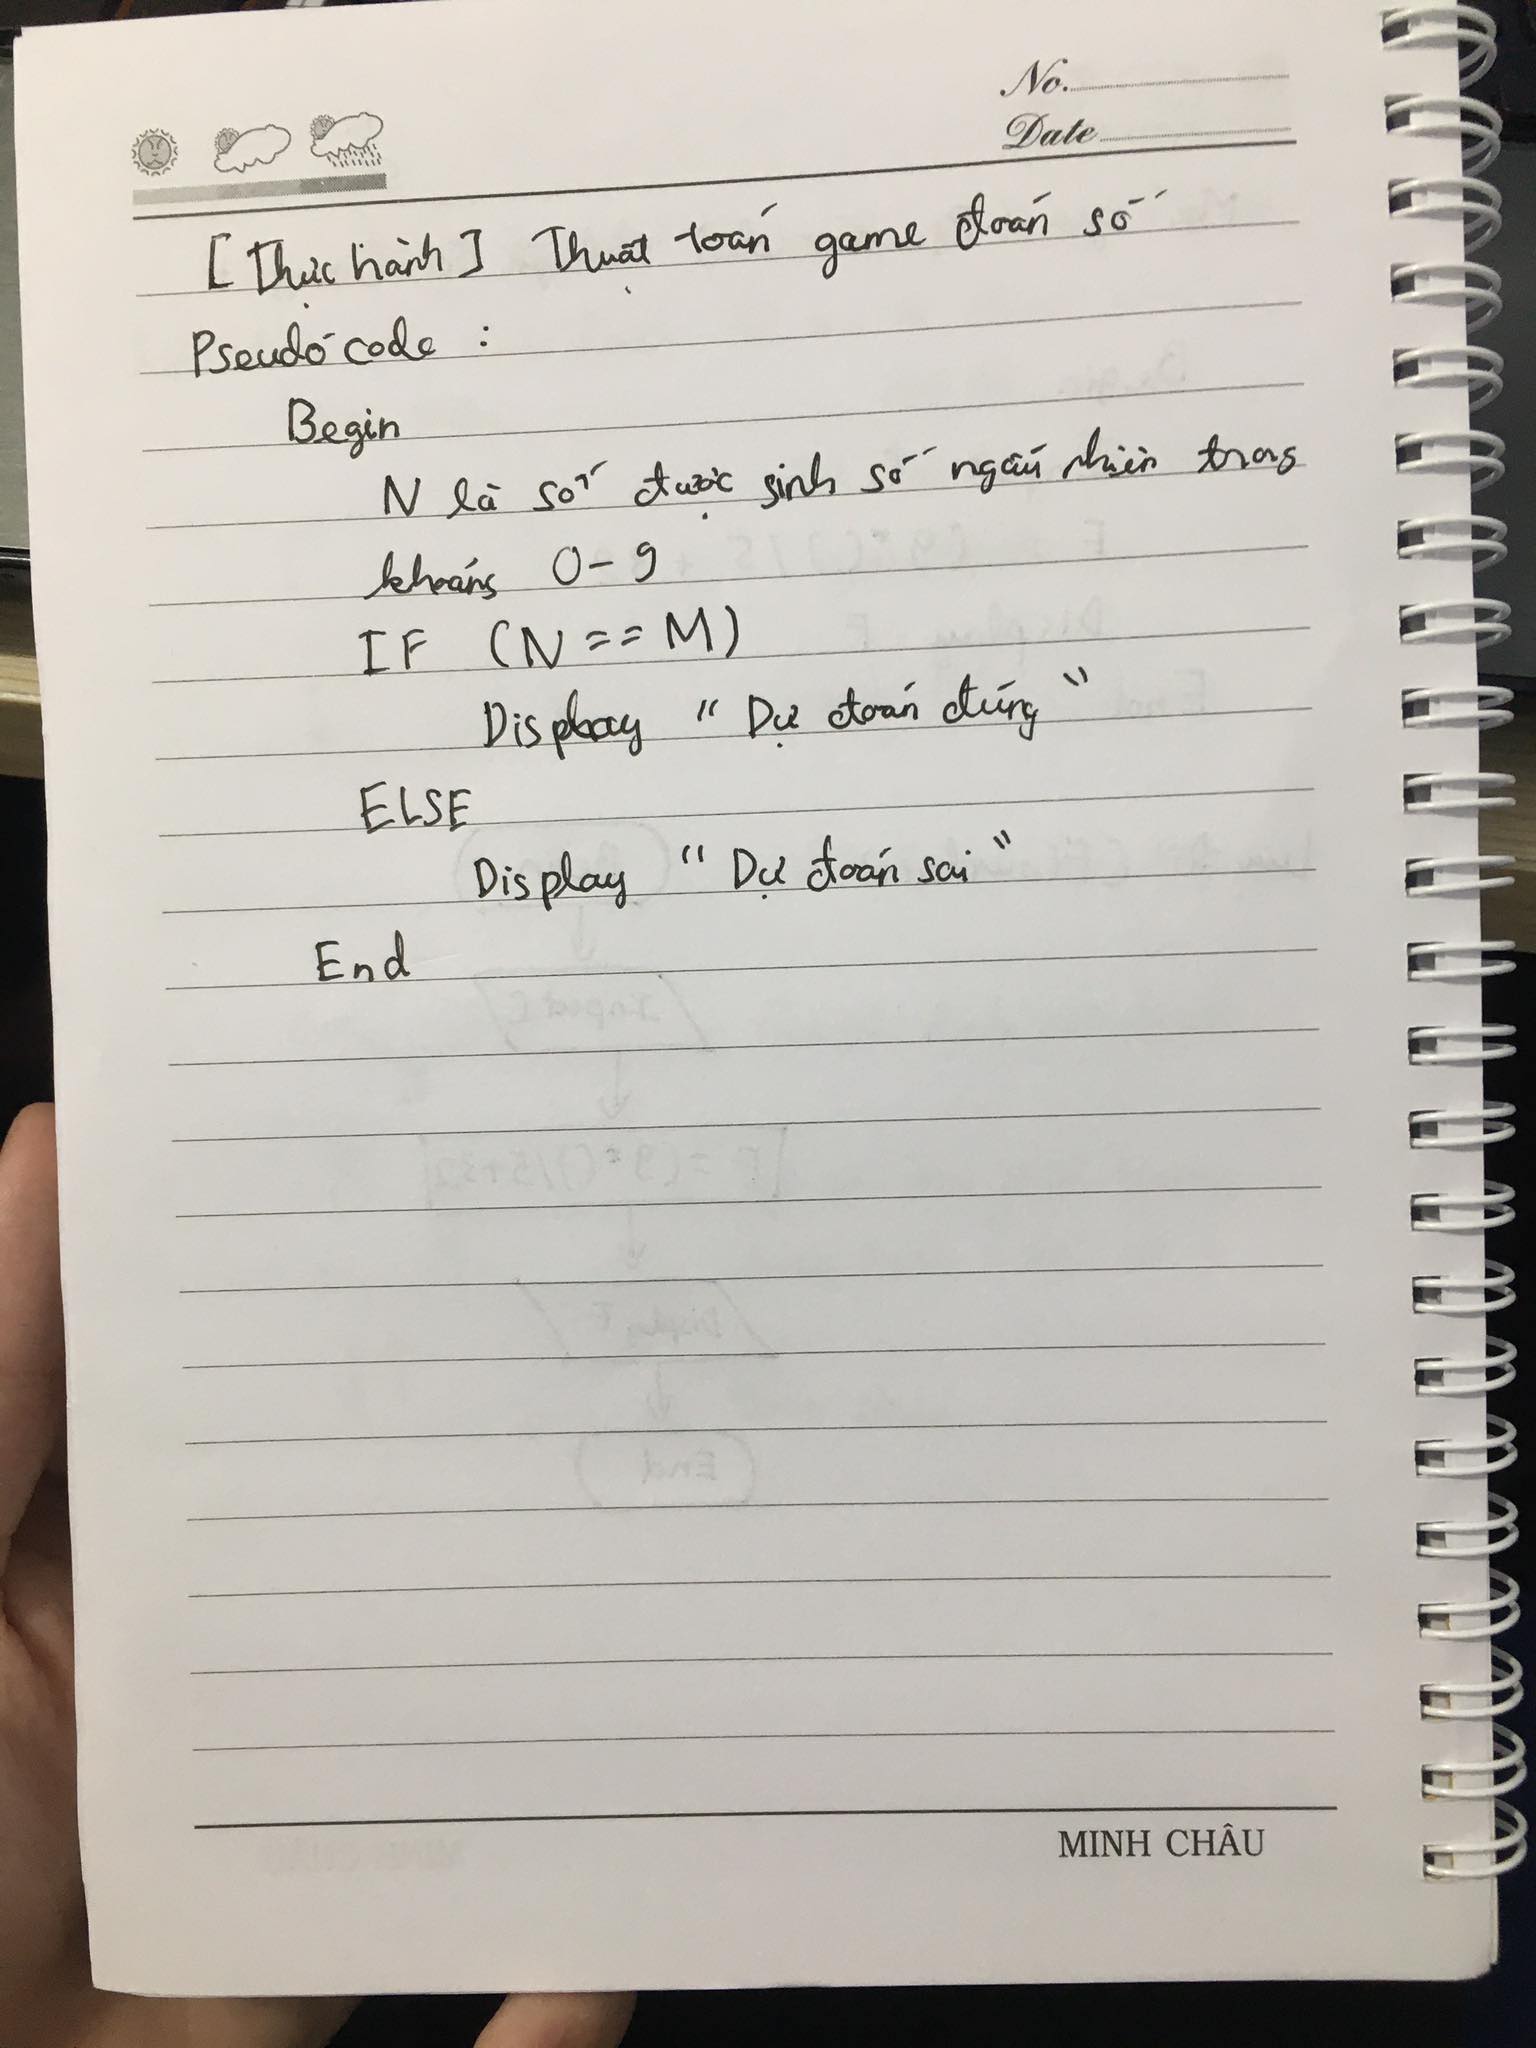 No.
Date
[Thực hành] Thuật toán game đoán số
Pseudo code :
Begin
N là số được sinh số ngẫu nhiên trong
khoảng 0-9
IF (N == M)
Display "Dự đoán đúng"
ELSE
Display "Dự đoán sai"
End
MINH CHÂU